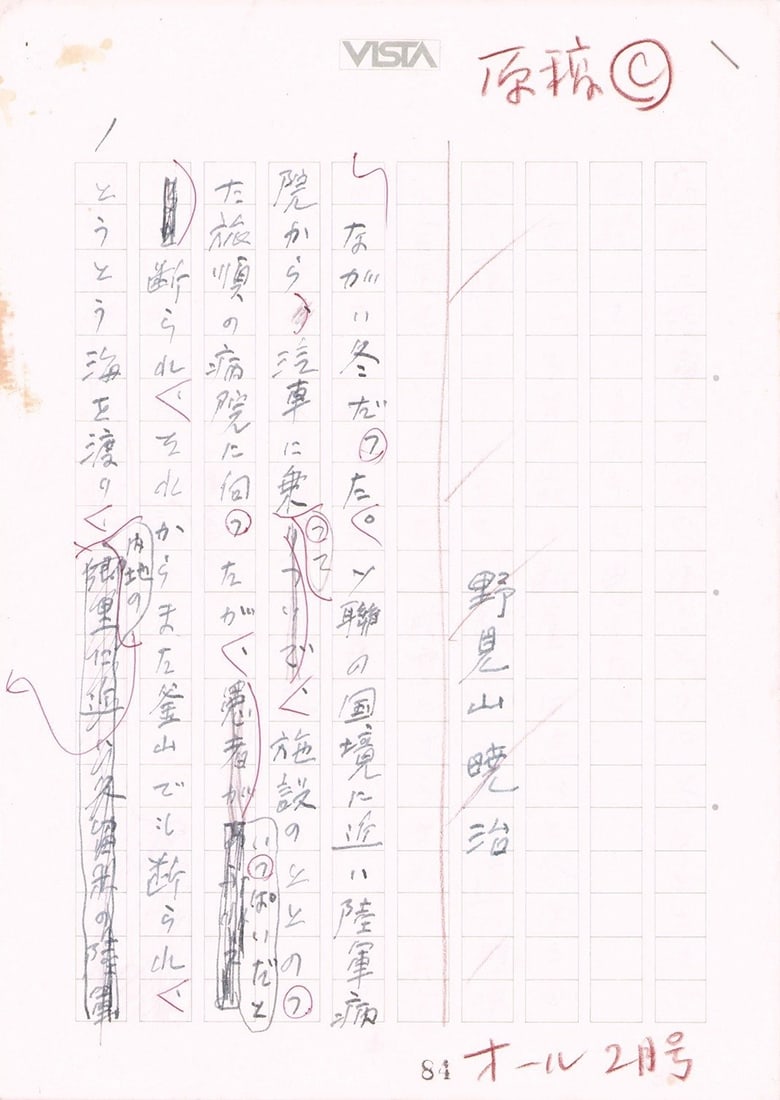 VISTA
原稿Ⓒ
野見山暁治
ながい冬だった。ソ聯の国境に近い陸軍病
院から汽車に乗って、施設のととのっ
た旅順の病院に向ったが、患者が
いっぱいだと
断られ、それからまた釜山でも断られ、
内地の
とうとう海を渡り、郷里に近い久留米の陸軍
84
オール2月号